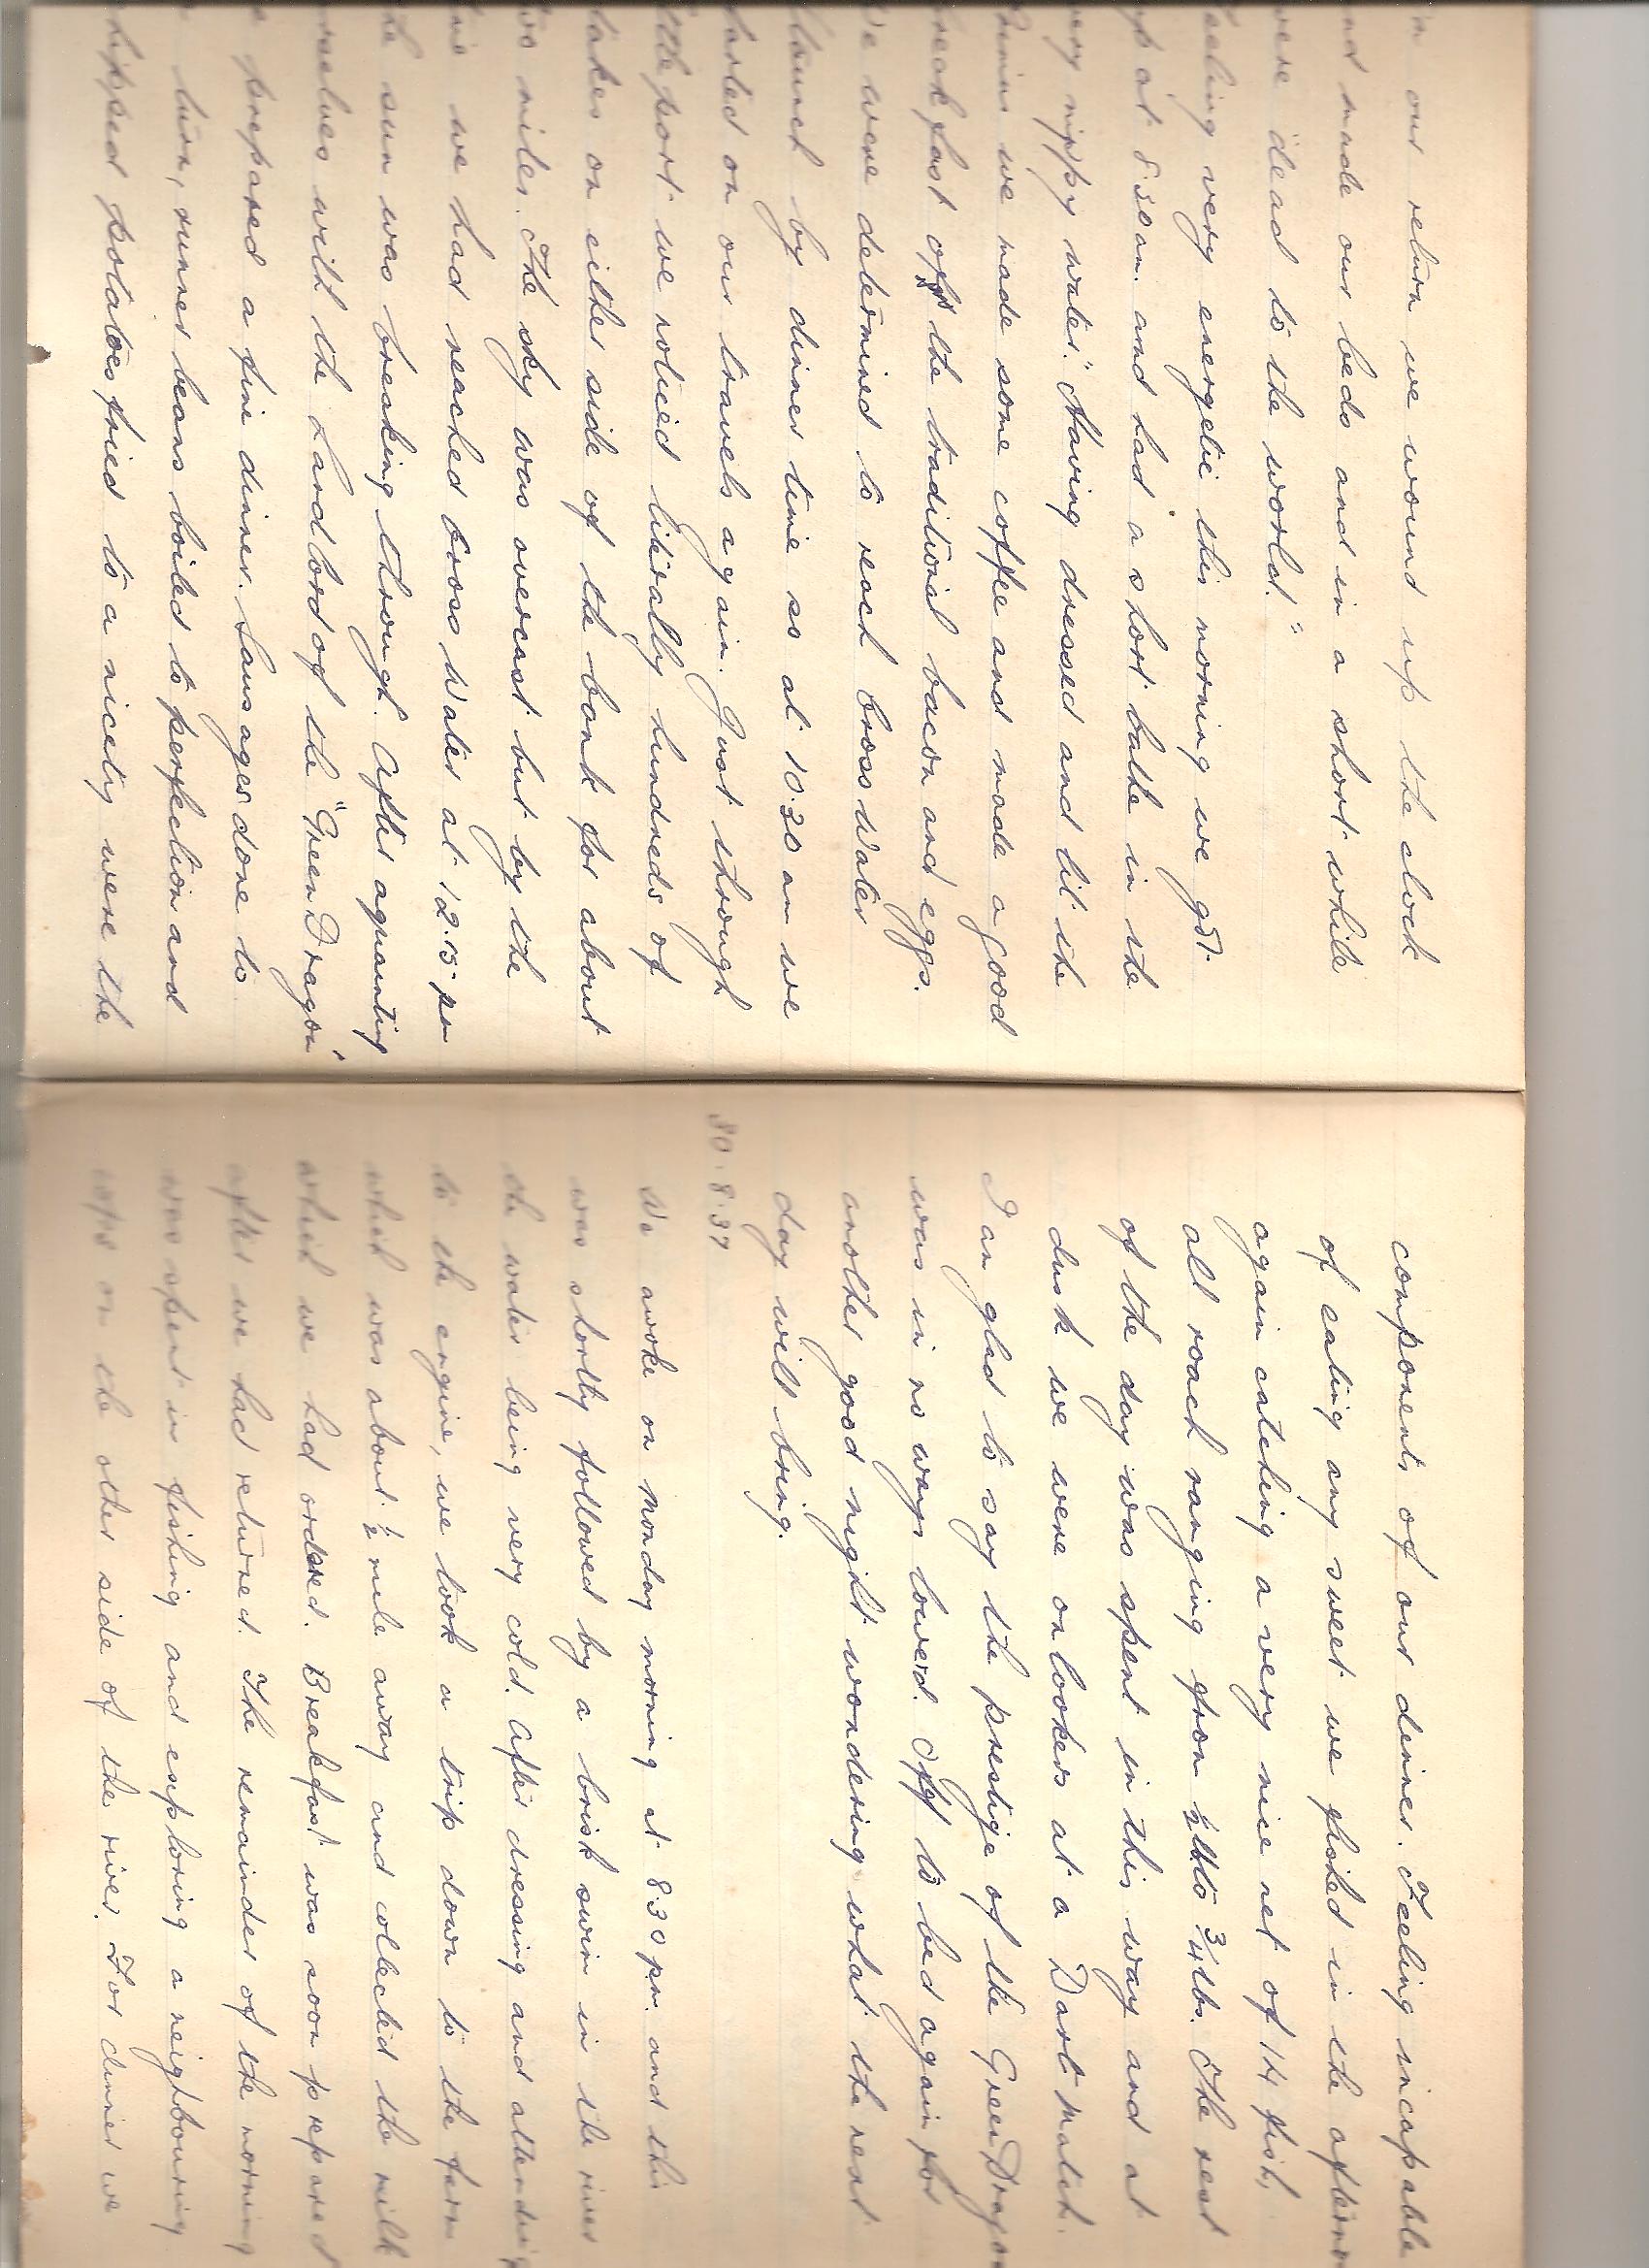 our return we wound up the clock
made our beds and in a short while
were "dead to the world."
Feeling very energetic this morning we got
up at 8.30am. and had "a short bathe in the
very nippy water." Having dressed and lit the
Primus we made some coffee and made a good
breakfast off the traditional bacon and eggs.
We were determined to reach Cross Water
Staunch by dinner time so at 10.30 am we
started on our travels again. Just through
Littleport we noticed literally hundreds of
stakes on either side of the bank for about
two miles. The sky was overcast but by the
time we had reached Cross Water at 12.15 pm
the sun was breaking through. After aquainting
ourselves with the Landlord of the "Green Dragon"
we prepared a fine dinner. Sausages done to
a turn, runner beans boiled to perfection and
chipped potatoes fried to a nicety were the
components of our dinner. Feeling incapable
of eating any sweet we fished in the
again catching a very nice net of 14 fish,
all roach ranging from ½lb to ¾lbs. The rest
of the day was spent in this way and at
dusk we were onlookers at a Dart Match.
I am glad to say the prestige of the Green Dragon
was in no ways lowerd. Off to bed again for
another good night wondering what the next
day will bring.
30.8.37
We awoke on Monday morning at 8.30 pm. and this
was shortly followed by a brisk swim in the river
the water being very cold. After dressing and attending
to the engine, we took a trip down to the farm
which was about ½ mile away and collected the milk
which we had ordered. Breakfast was soon prepared
after we had returned. The remainder of the morning
was spent in fishing and exploring a neighbouring
on the other side of the river. For dinner we